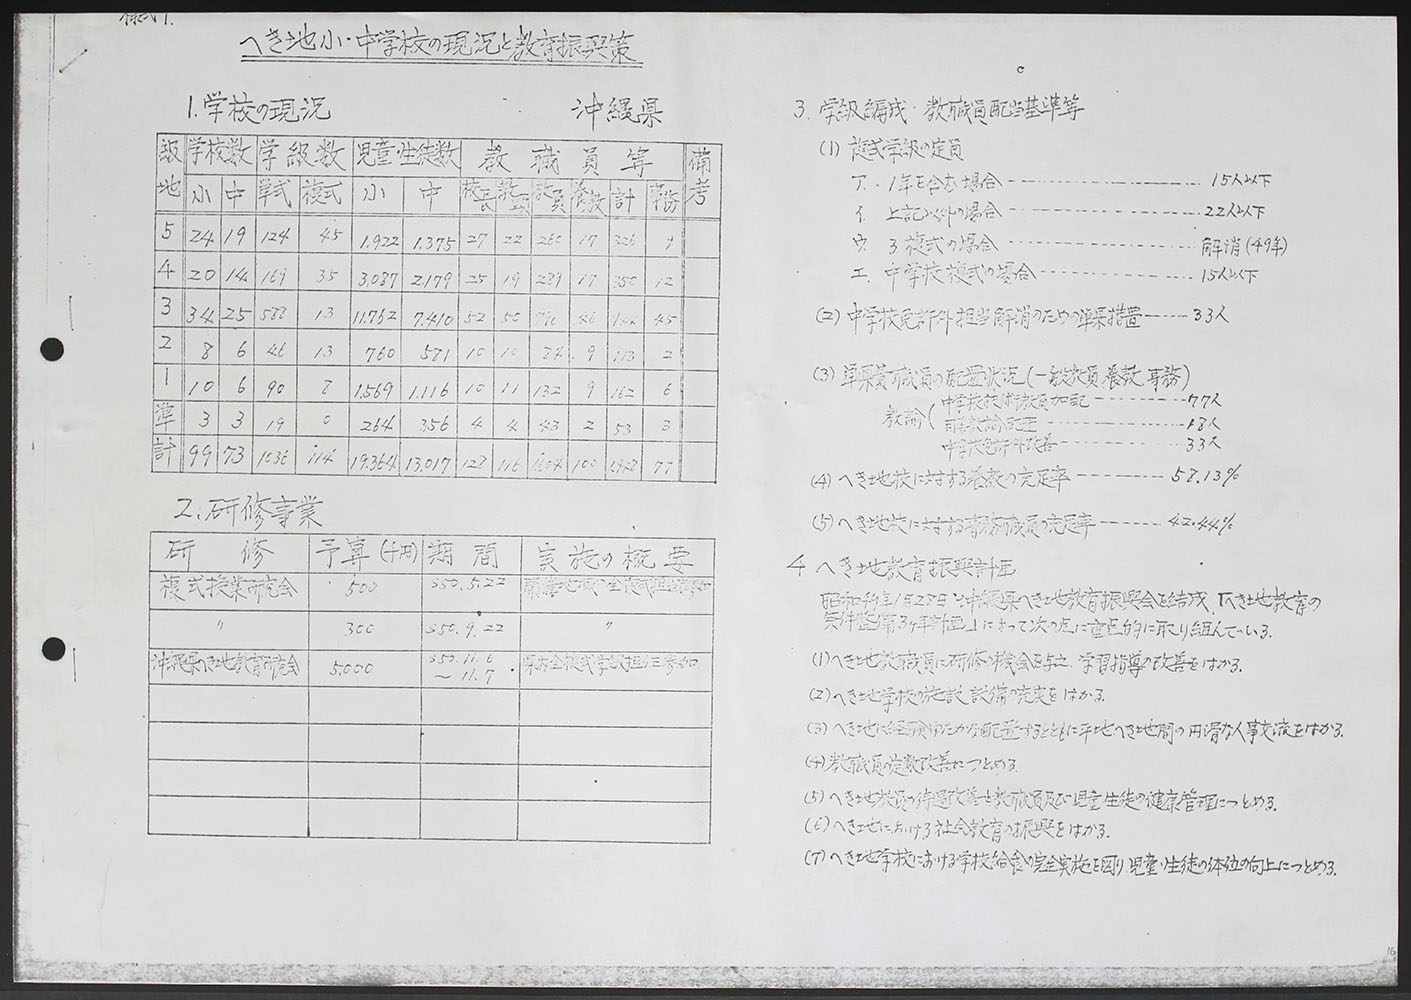 様式1.
へき地小・中学校の現況と教育振興策
1.学校の現況 沖縄県
級地 学校数 学級数 児童・生徒数 教職員等 備考
小 中 単式 複式 小 中 校長 教頭 教員 養教 計 事務
5 24 19 124 45 1.922 1.375 27 22 260 17 326 9
4 20 14 169 35 3.087 2.179 25 19 289 17 350 12
3 34 25 588 13 11.762 7.410 52 50 46 45
2 8 6 46 13 760 581 10 10 84 9 113 2
1 10 6 90 8 1.569 1.116 10 11 132 9 162 6
準 3 3 19 0 264 356 4 4 43 2 53 3
計 99 73 1036 114 19.364 13.017 128 116 1604 100 1948 77
2.研修事業
研修 予算(千円) 期間 実施の概要
複式授業研究会 500 S50.5.22
〃 300 S50.9.22 〃
沖縄県へき地教育研究会 5.000 S50.11.6 〜11.7 県内全複式学級担任参加
3.学級編成・教職員配当基準等
(1) 複式学級の定員
ア. 1年を含む場合 ---- 15人以下
イ. 上記以外の場合 ---- 22人以下
ウ. 3複式の場合 ---- 解消(49年)
エ. 中学校複式の場合 ---- 15人以下
(2) 中学校免許外担当解消のための単県措置 ---- 33人
(3) 単県費職員の配置状況(一般教員、養教、事務)
教諭( 中学校技術教員加配 ---- 77人
司書教諭配置 ---- 18人
中学校免許外改善 ---- 33人
(4) へき地校に対する養教の充足率 ---- 58.13%
(5) へき地校に対する事務職員の充足率 ---- 42.44%
4 へき地教育振興計画
昭和49年1月28日に沖縄県へき地教育振興会を結成、「へき地教育の
条件整備3ヶ年計画」によって次の点に重点的に取り組んでいる.
(1) へき地教職員に研修の機会を与え、学習指導の改善をはかる.
(2) へき地学校の施設、設備の充実をはかる.
(3) へき地に経験ゆたかな配置するとともに平地へき地間の円滑な人事交流をはかる.
(4) 教職員の定数改善につとめる.
(5) へき地教員の待遇改善と教職員及び児童・生徒の健康管理につとめる.
(6) へき地における社会教育の振興をはかる.
(7) へき地学校における学校給食の完全実施を図り、児童・生徒の体位の向上につとめる.
16